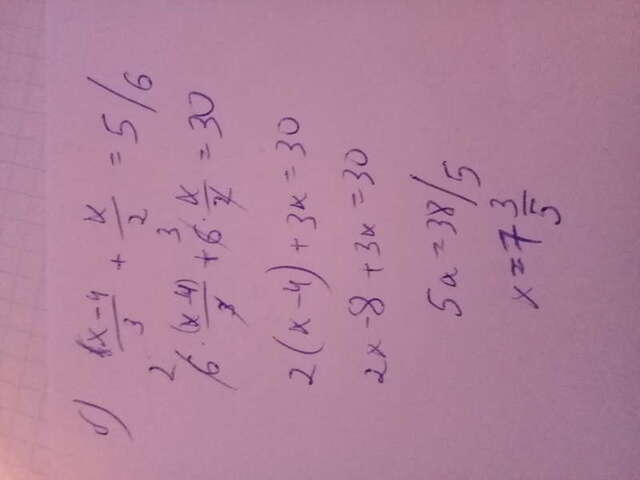 б) (x-4)/3 + x/2 = 5 /6
2 6·(x-4)/3 + 3 6·x/2 = 30
2(x-4)+3x=30
2x-8+3x=30
5x=38/5
x=7 3/5